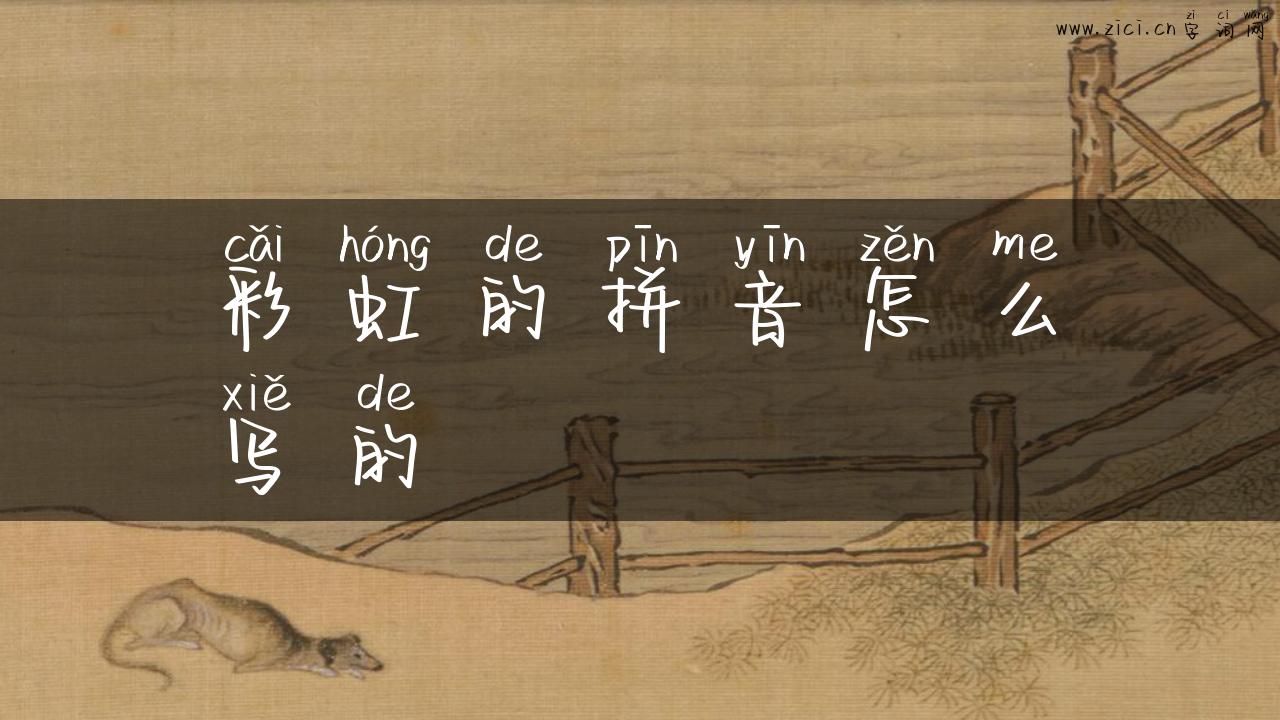 zì cí wǎng
www.zici.cn 字词网
cǎi hóng de pīn yīn zěn me
彩虹的拼音怎么
xiě de
写的